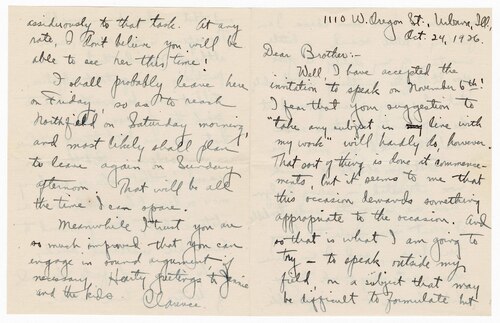 1110 W. Oregon St., Urbana, Ill.,
Oct. 24, 1926.
Dear Brother:-
Well, I have accepted the
invitation to speak on November 6th!
I fear that your suggestion to
"take any subject in line with
my work" will hardly do, however.
That sort of thing is done at commence-
ments, but it seems to me that
this occasion demands something
appropriate to the occasion. And
so that is what I am going to
try - to speak outside my
field, on a subject that may
be difficult to formulate but
assiduously to that task. At any
rate, I don't believe you will be
able to see her this time!
I shall probably leave here
on Friday, so as to reach
Northfield on Saturday morning,
and most likely shall plan
to leave again on Sunday
afternoon. That will be all
the time I can spare.
Meanwhile I trust you are
so much improved that you can
engage in sound argument if
necessary. Hearty greetings to Jennie
and the kids.
Clarence